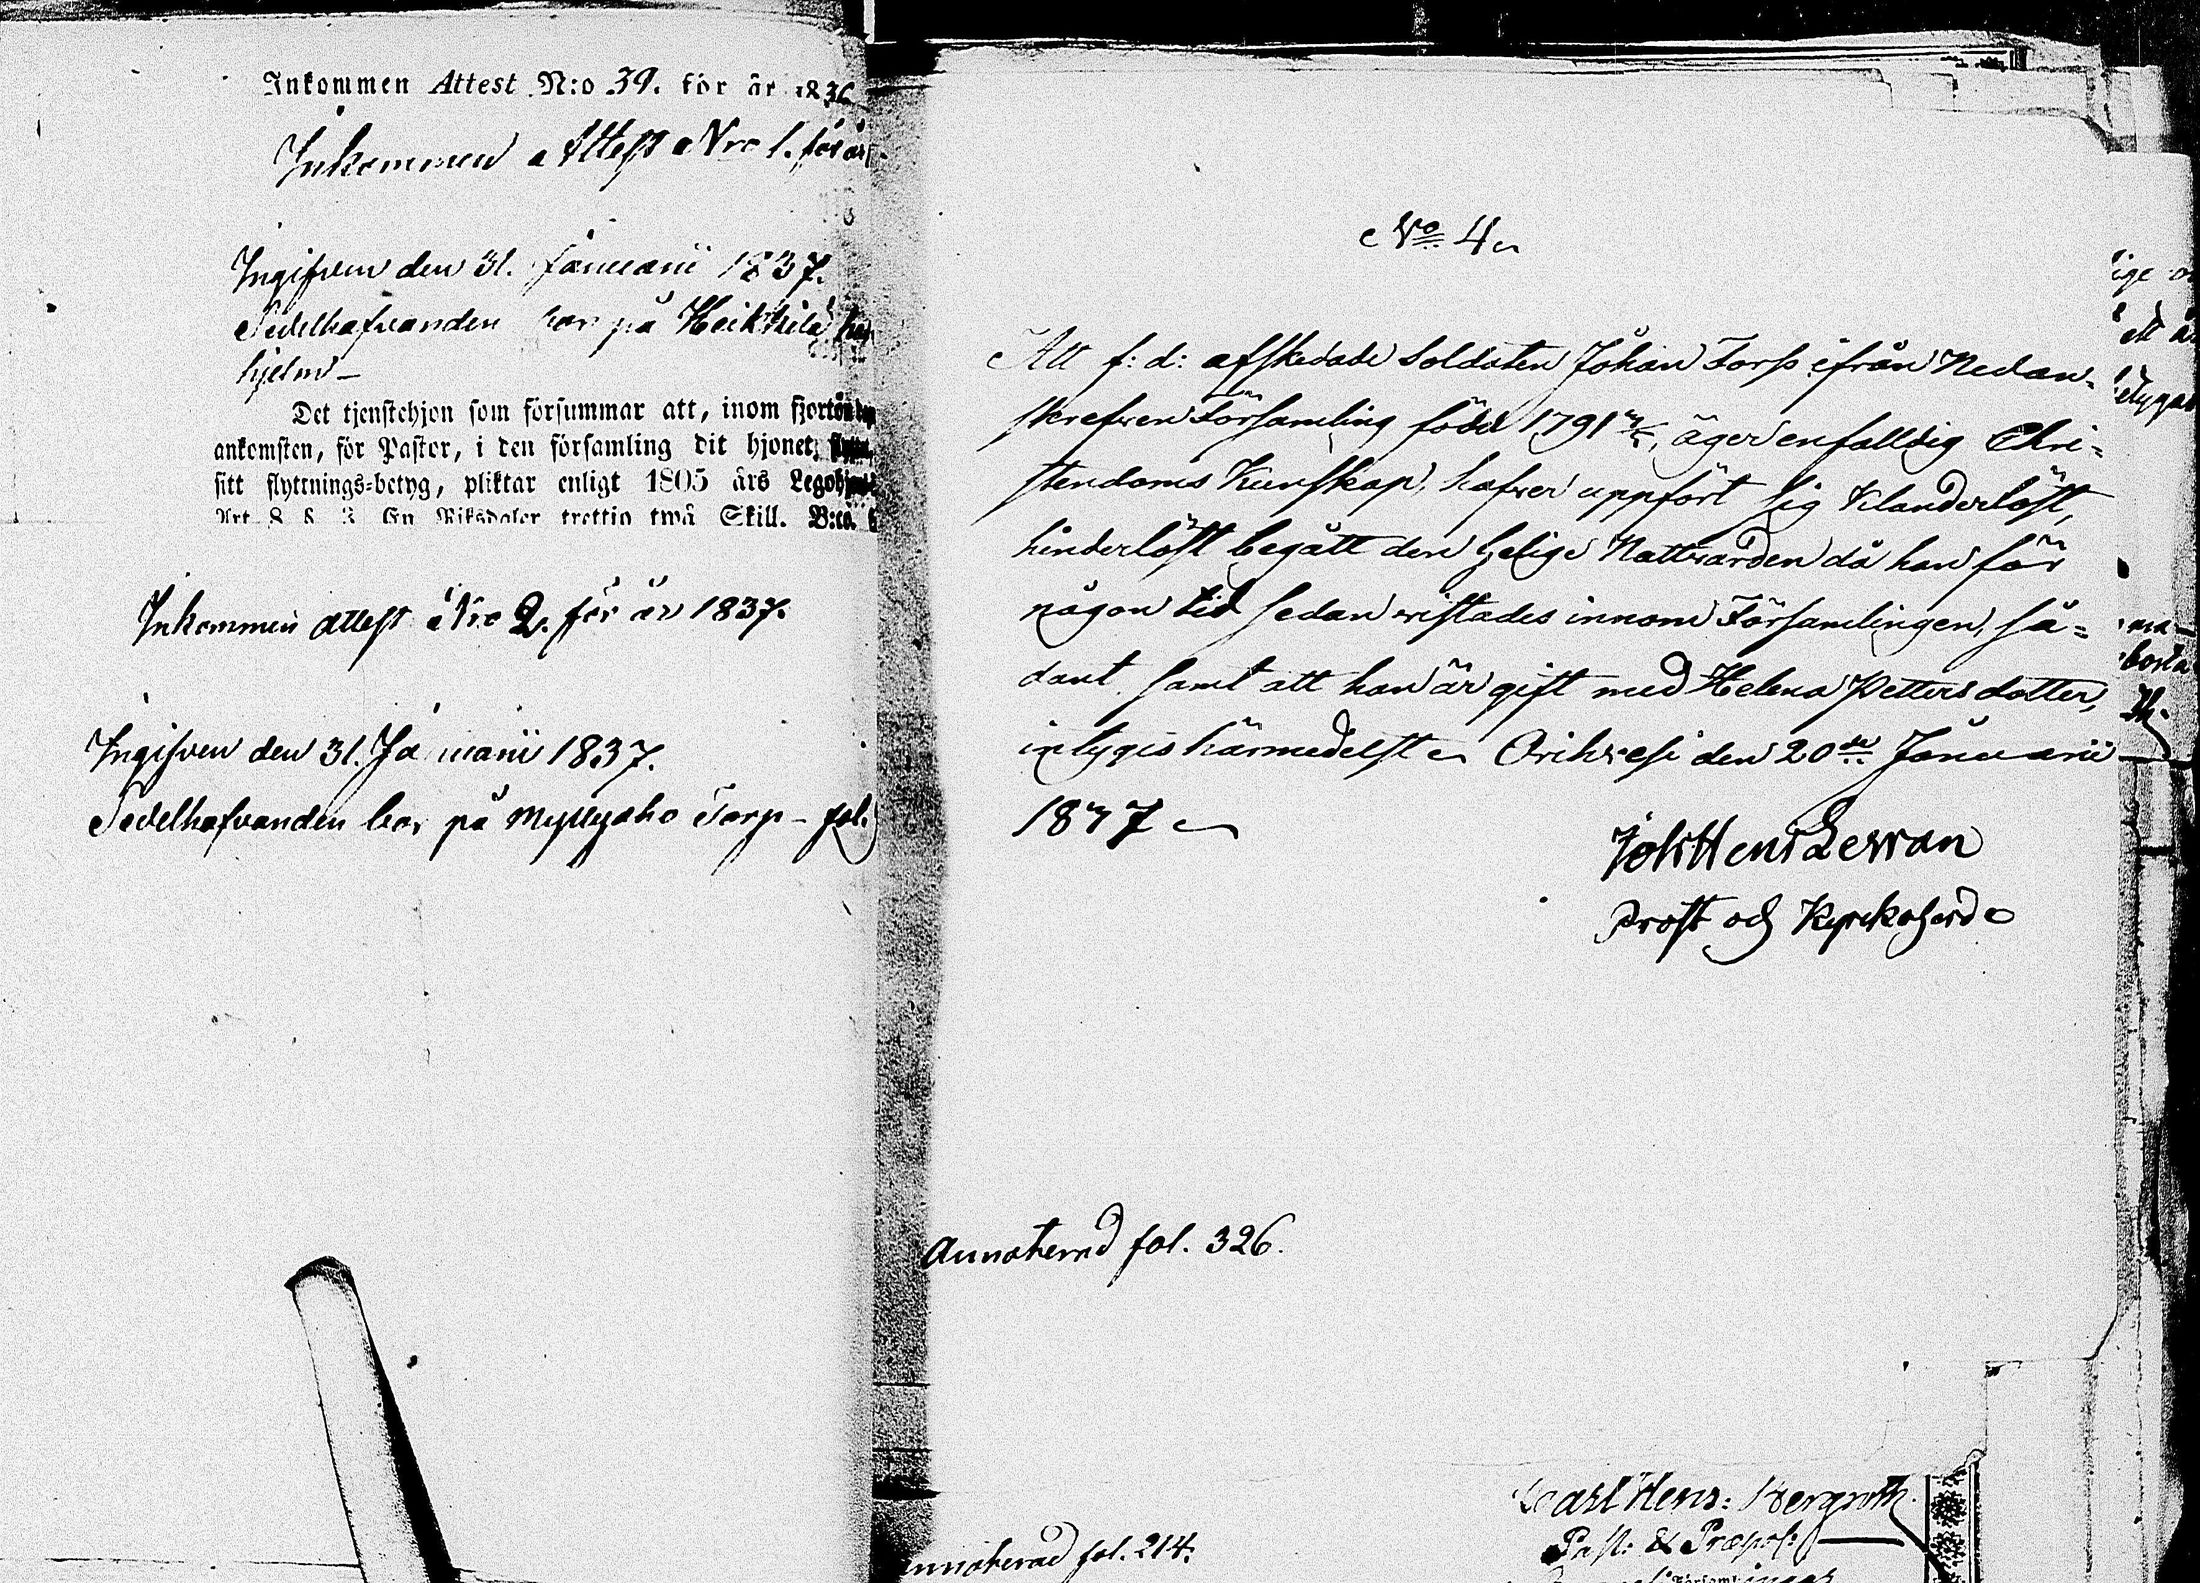 Inkommen Attest N:o 39. för år 1836
Inkommen Attest Nro 1. för år
Ingifven den 31. Januarii 1837.
Sedelhafvanden bor på Heikkilä
hjelm –
Det tjenstehjon som försummar att, inom fjorton
ankomsten, för Pastor, i den församling dit hjonet
sitt flyttnings-betyg, pliktar enligt 1805 års
Art. 8 § 3. En Riksdaler trettio twå Skill. B:co.
Inkommen attest Nro 2. för år 1837.
Ingifven den 31. Januarii 1837.
Sedelhafvanden bor på Myllyaho Torp – fol.
No 4
Att f: d: afskedade Soldaten Johan Forss ifrån Nedan-
skrefven Församling född 1791, äger enfalldig Chri-
stendoms Kunskap, hafver uppfört sig Klanderlöst,
hinderlöst begått den Helige Nattvarden då han för
någon tid sedan vistades innom Församlingen, så-
dant samt att han är gift med Helena Pettersdotter,
intygis härmedelst Orihvesi den 20de Januarii
1837
Joh Henr Levvan
Prost och Kyrkoherde
Annoterad fol. 326.
Annoterad fol. 214.
Carl Henr: Bergroth.
Past: & Præpos: